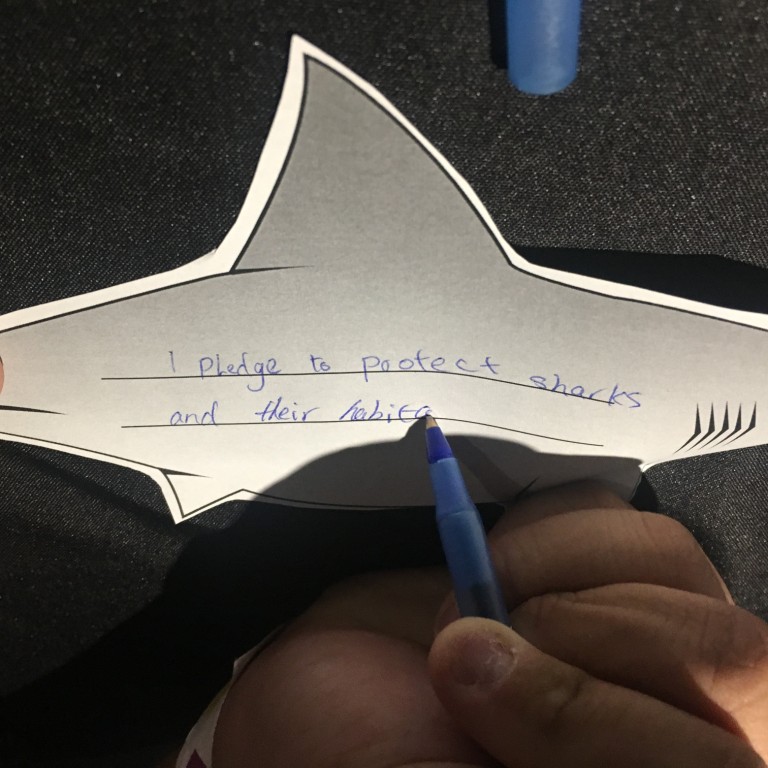 I pledge to pootect sharks
and their habita